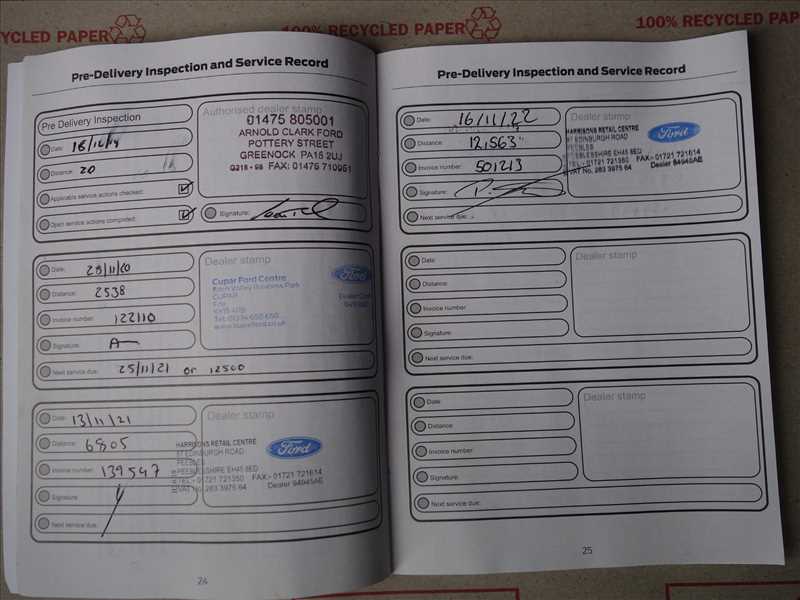 CYCLED PAPER
100% RECYCLED PAPER
100% RECYCLED PAPER
Pre-Delivery Inspection and Service Record
Pre Delivery Inspection
Date:
Distance: 20
Applicable service actions checked:
Open service actions completed:
Authorised dealer stamp
01475 805001
ARNOLD CLARK FORD
POTTERY STREET
GREENOCK PA15 2UJ
FAX: 01475 710951
Signature:
Date: 25/11/20
Distance: 2538
Invoice number: 122110
Signature:
Next service due: 25/11/21 or 12500
Dealer stamp
Ford
Cupar Ford Centre
CUPAR
Fife
Date: 13/11/21
Distance: 6805
Invoice number: 139547
Signature
Next service due:
Dealer stamp
Ford
HARRISONS RETAIL CENTRE
EDINBURGH ROAD
PEEBLES
PEEBLESSHIRE EH45 8ED
TEL:- 01721 721350 FAX:- 01721 721614
VAT No. 263 3975 64 Dealer 94945AE
24
Pre-Delivery Inspection and Service Record
Date: 16/11/22
Distance: 12,563
Invoice number: 501213
Signature:
Next service due:
Dealer stamp
Ford
HARRISONS RETAIL CENTRE
EDINBURGH ROAD
PEEBLES
PEEBLESSHIRE EH45 8ED
TEL:- 01721 721350 FAX:- 01721 721614
VAT No. 263 3975 64 Dealer 94945AE
Date:
Distance:
Invoice number
Signature:
Next service due:
Dealer stamp
Date:
Distance
Invoice number:
Signature:
Next service due:
Dealer stamp
25